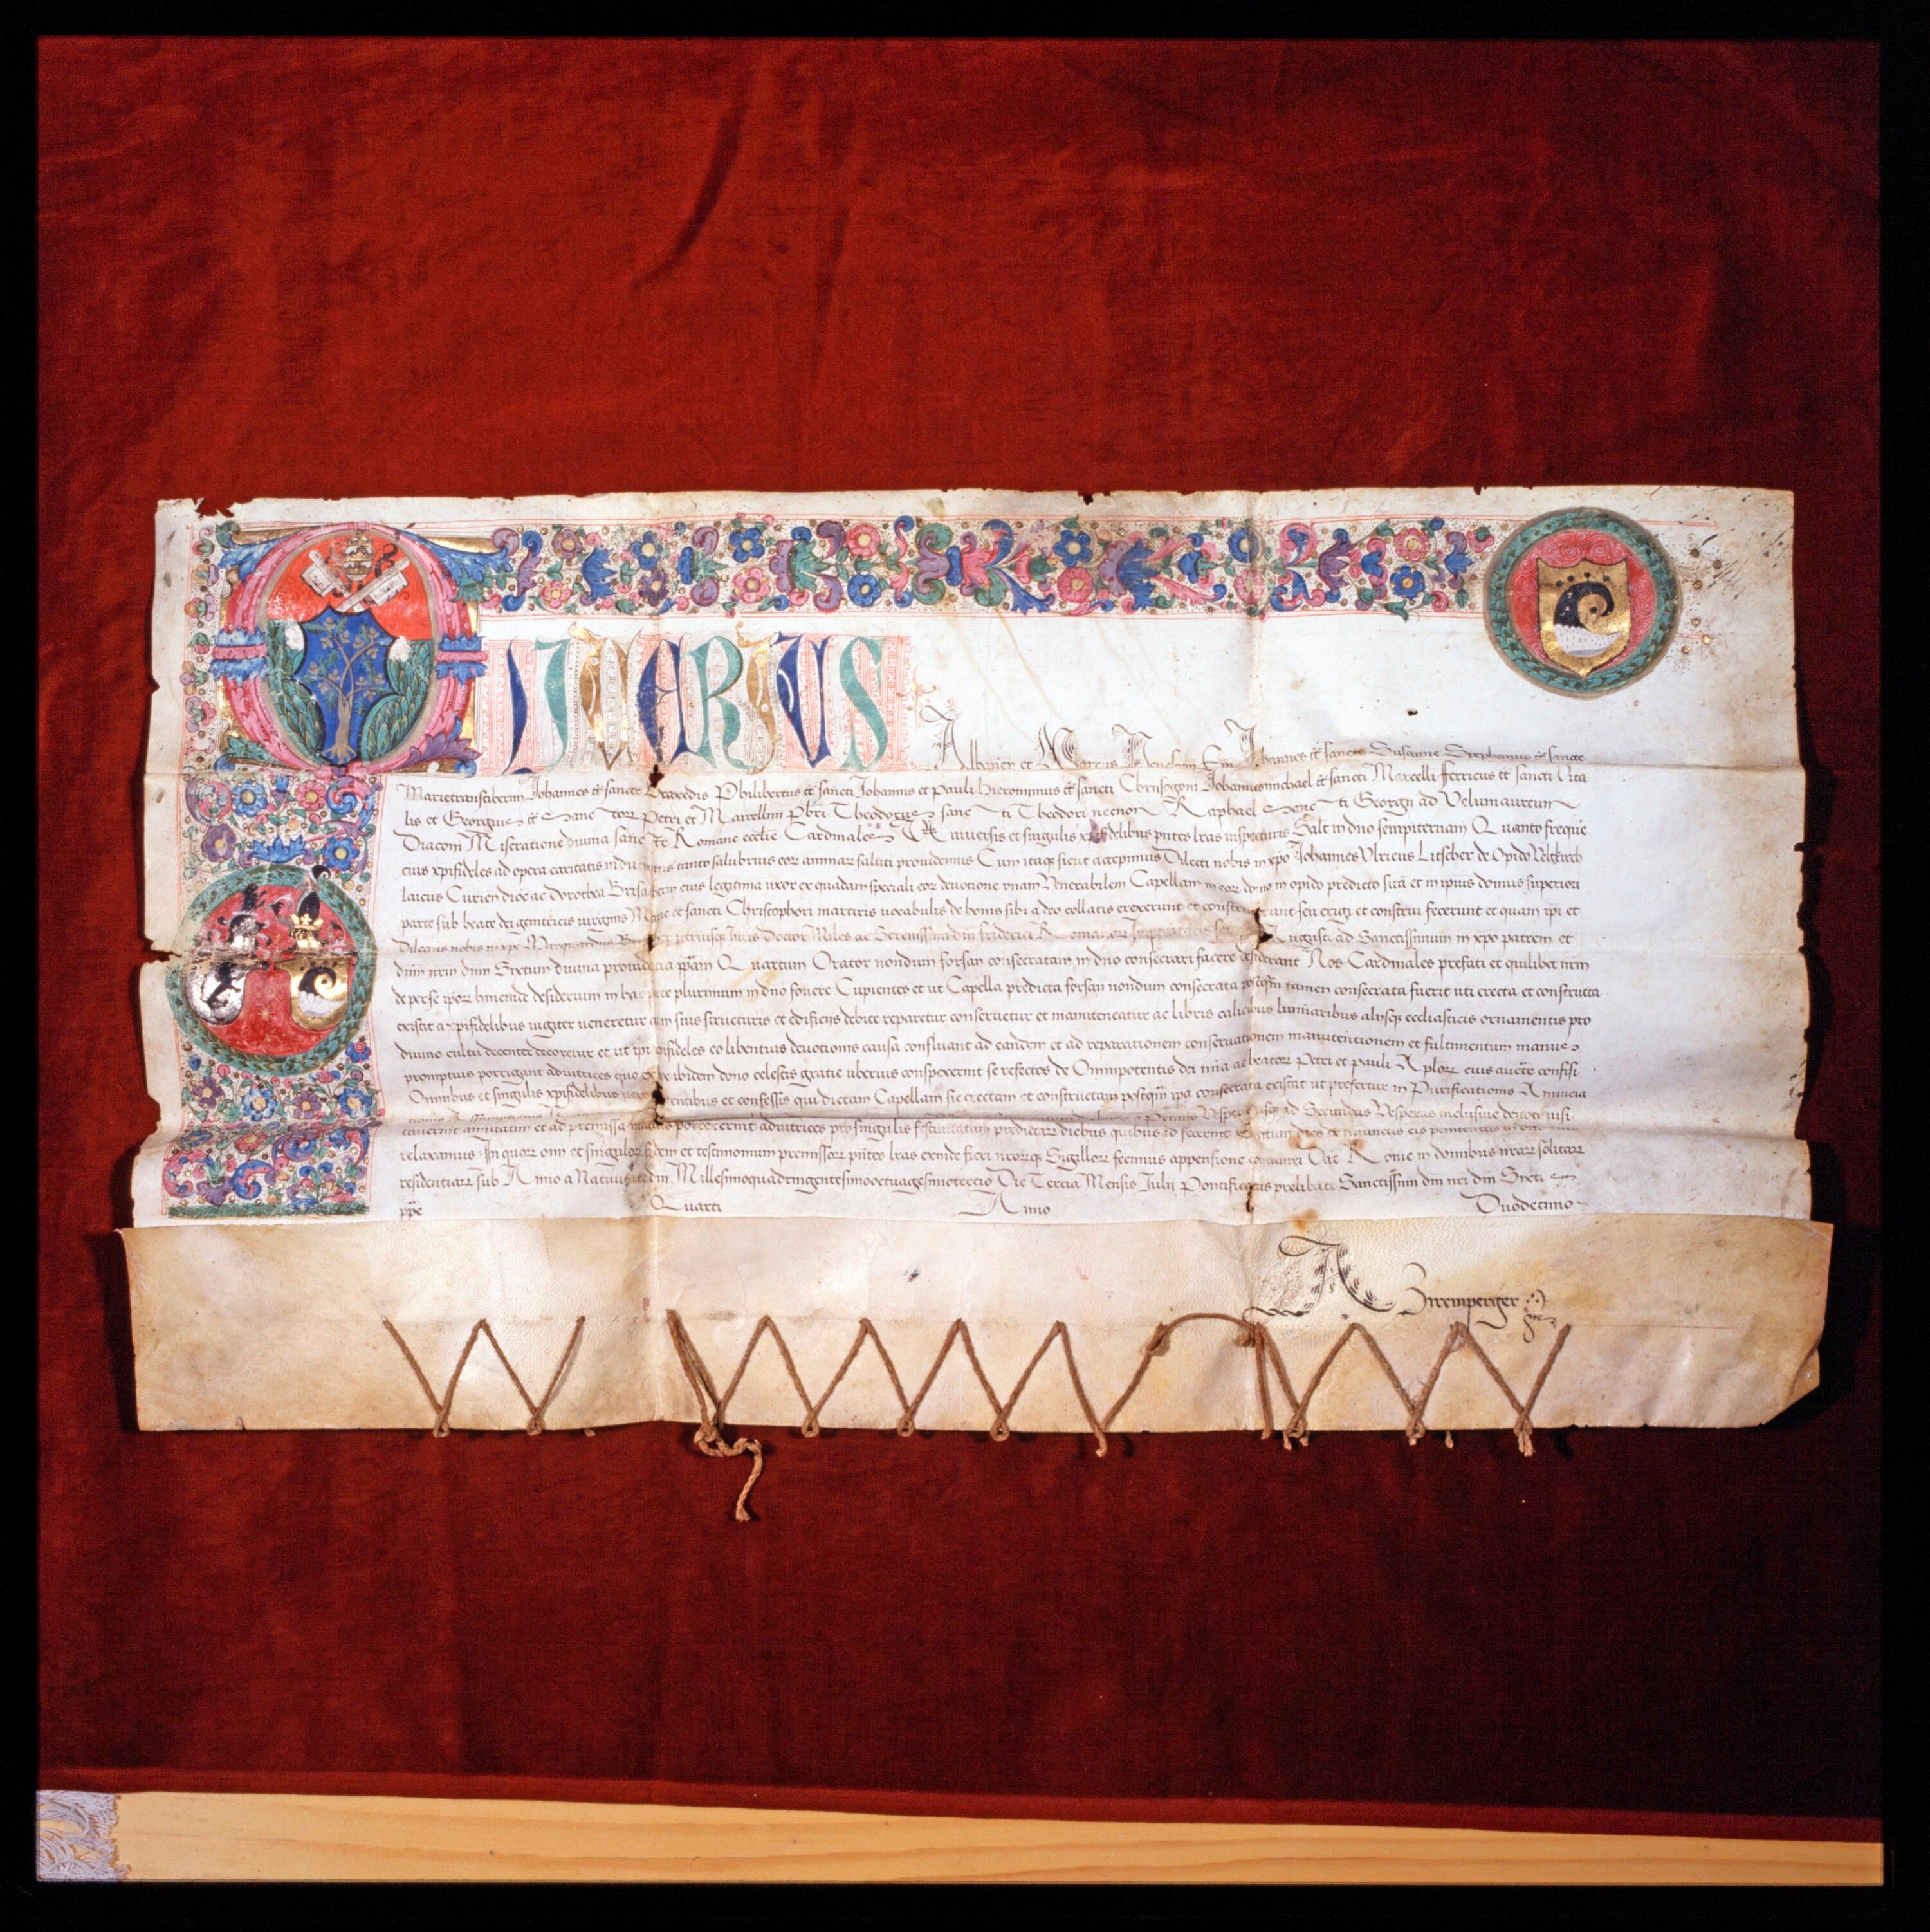 OLIVERIUS
Albanen et Marcus Penestrin Ep̃i Johannes tt̃ sancte Susanne Stephanus tt̃ sancte
Marietranstiberim Johannes tt̃ sancte Praxedis Philibertus tt̃ sancti Johannis et pauli hieronimus tt̃ sancti Chrisogoni Johannesmichael tt̃ sancti Marcelli ferricus tt̃ sancti Vita
lis et Georgius tt̃ Sanctorꝝ Petri et Marcellini pbr̃i Theodorus sancti Theodori necnon Raphael Sancti Georgii ad Velumaureum
Diaconi Miseratione diuina sancte Romane ecclie Cardinales Vniuersis et singulis xp̃ifidelibus pñtes lr̃as inspecturis Salt̃ in dño sempiternam Quanto freque
cius xpifideles ad opera caritatis inducimus tanto salubrius eoꝝ animaꝝ saluti prouidemus Cum itaqꝫ sicut accepimus Dilecti nobis in xp̃o Johannes Vlricus Litscher de Opido Veltkirch
laicus Curien dioc̃ ac Dorothea eius legitima vxor ex quadam speciali eoꝝ deuotione vnam Venerabilem Capellam in eoꝝ domo in opido predicto sita et in ipsius domus superiori
parte sub beate dei genitricis virginis Marie et sancti Christophori martiris vocabulis de bonis sibi a deo collatis erexerunt et construxerunt seu erigi et construi fecerunt et quam ipi et
Dilectus nobis in xp̃o vtriusqꝫ Juris Doctor Miles ac Serenissimi dm̃ friderici Romanorꝝ Imperatoris Augusti ad Sanctissimum in xp̃o patrem et
dñm nrm dñm Sixtum diuina prouidentia pp̃am Quartum Orator nondum forsan consecratam in dño consecrari facere desiderant Nos Cardinales prefati et quilibet nrm
de per se ipoꝝ huiusmodi desiderium in hac parte plurimum in dño fouere Cupientes et ut Capella predicta forsan nondum consecrata postqm̃ tamen consecrata fuerit uti erecta et constructa
existit a xpifidelibus iugiter veneretur in suis structuris et edificiis debite reparetur conseruetur et manuteneatur ac libris calicibus luminaribus alijsqꝫ ecclesiasticis ornamentis pro
diuino cultu decenter decoretur et ut ipi xpifideles eo libentius deuotionis causa confluant ad eandem et ad reparationem conseruationem manutentionem et fulcimentum manus
promptius porrigant adiutrices quo ex hoc ibidem dono celestis gratie uberius conspexerint se refectos de Omnipotentis dei mĩa ac beatoꝝ Petri et pauli Aplorꝝ eius auct̃e confisi
Omnibus et singulis xpifidelibus vere penitentibus et confessis qui dictam Capellam sic erectam et constructam postqm̃ ipa consecrata existat ut prefertur in Purificationis Anuncia
tionis a Primis Vesperis usqꝫ ad Secundas Vesperas inclusiue deuote visi
tauerint annuatim et ad premissa manus porrexerint adiutrices pro singulis festiuitatum predictaꝝ diebus quibus id fecerint Centum dies de iniunctis eis penitentiis in dño
relaxamus In quorꝝ om̃i et singulorꝝ fidem et testimonium premissorꝝ pñtes lr̃as exinde fieri nrorꝫqꝫ Sigillorꝝ fecimus appensione communiri Dat̃ Rome in domibus nrarꝝ solitarꝝ
residentiarꝝ sub Anno a Natiuitate dñi Millesimoquadringentesimooctuagesimotercio Die Tercia Mensis Julii Pontificatus prelibati Sanctissimi dñi nri dñi Sixti
pp̃e Quarti Anno Duodecimo
A Zirenperger